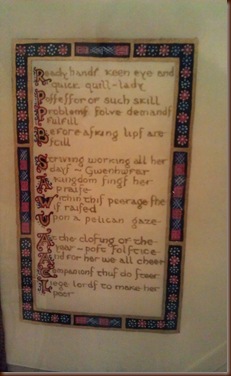 Ready hands keen eye and
quick quill-lady
Possessor of such skill
Problems solve demands
fulfill
Before asking lips are
still
Striving working all her
days ~ Gwenhwyvar
Kingdom sings her
praise
Within this peerage she
is raised
Upon a pelican gaze
At the closing of the
year ~ post solstice
And for her we all cheer
Companions this do steer
Liege lords to make her
peer